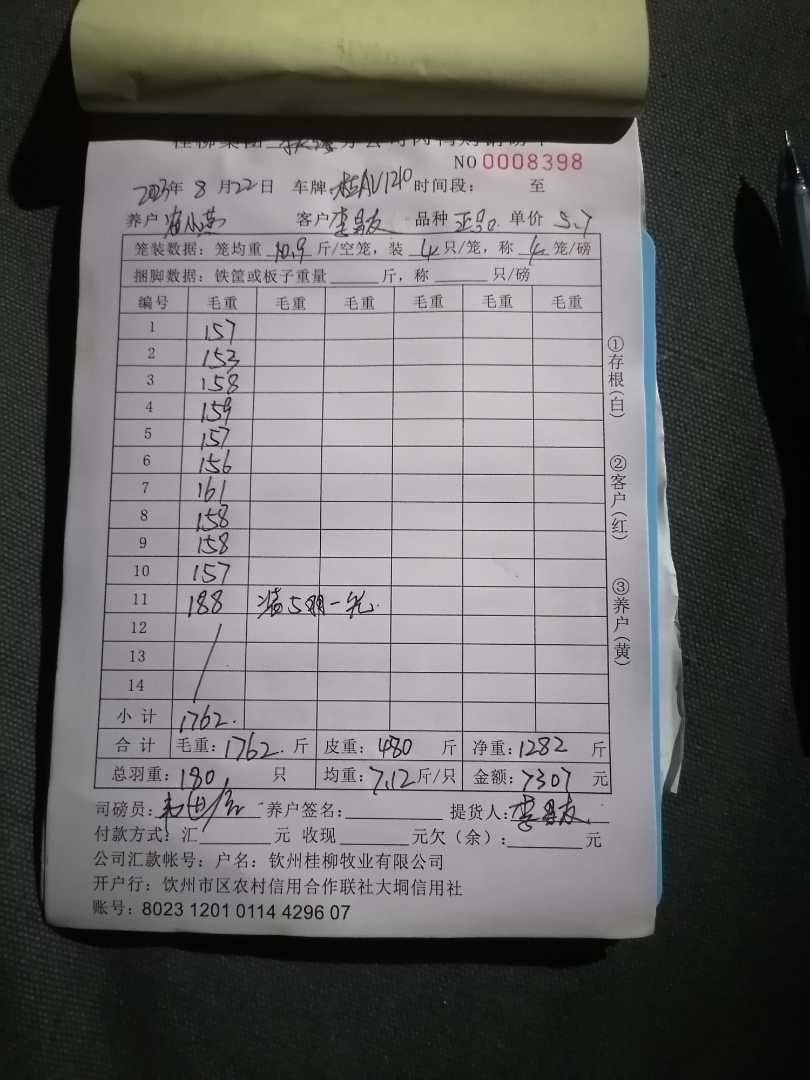 NO 0008398
2023年 8 月 22 日 车牌 桂AV1210 时间段： 至
养户 客户 李昌友 品种 正号 单价 5.7
笼装数据：笼均重 10.9 斤/空笼，装 4 只/笼，称 4 笼/磅
捆脚数据：铁筐或板子重量 斤，称 只/磅
编号 毛重 毛重 毛重 毛重 毛重 毛重
1 157
2 153
3 158
4 159
5 157
6 156
7 161
8 158
9 158
10 157
11 188 装5羽一笼
12
13
14
小计 1762
合计 毛重：1762 斤 皮重：480 斤 净重：1282 斤
总羽重：180 只 均重：7.12斤/只 金额：7307 元
司磅员： 养户签名： 提货人：李昌友
付款方式：汇 元 收现 元欠（余）： 元
公司汇款帐号：户名：钦州桂柳牧业有限公司
开户行：钦州市区农村信用合作联社大垌信用社
账号：8023 1201 0114 4296 07
①存根（白）
②客户（红）
③养户（黄）